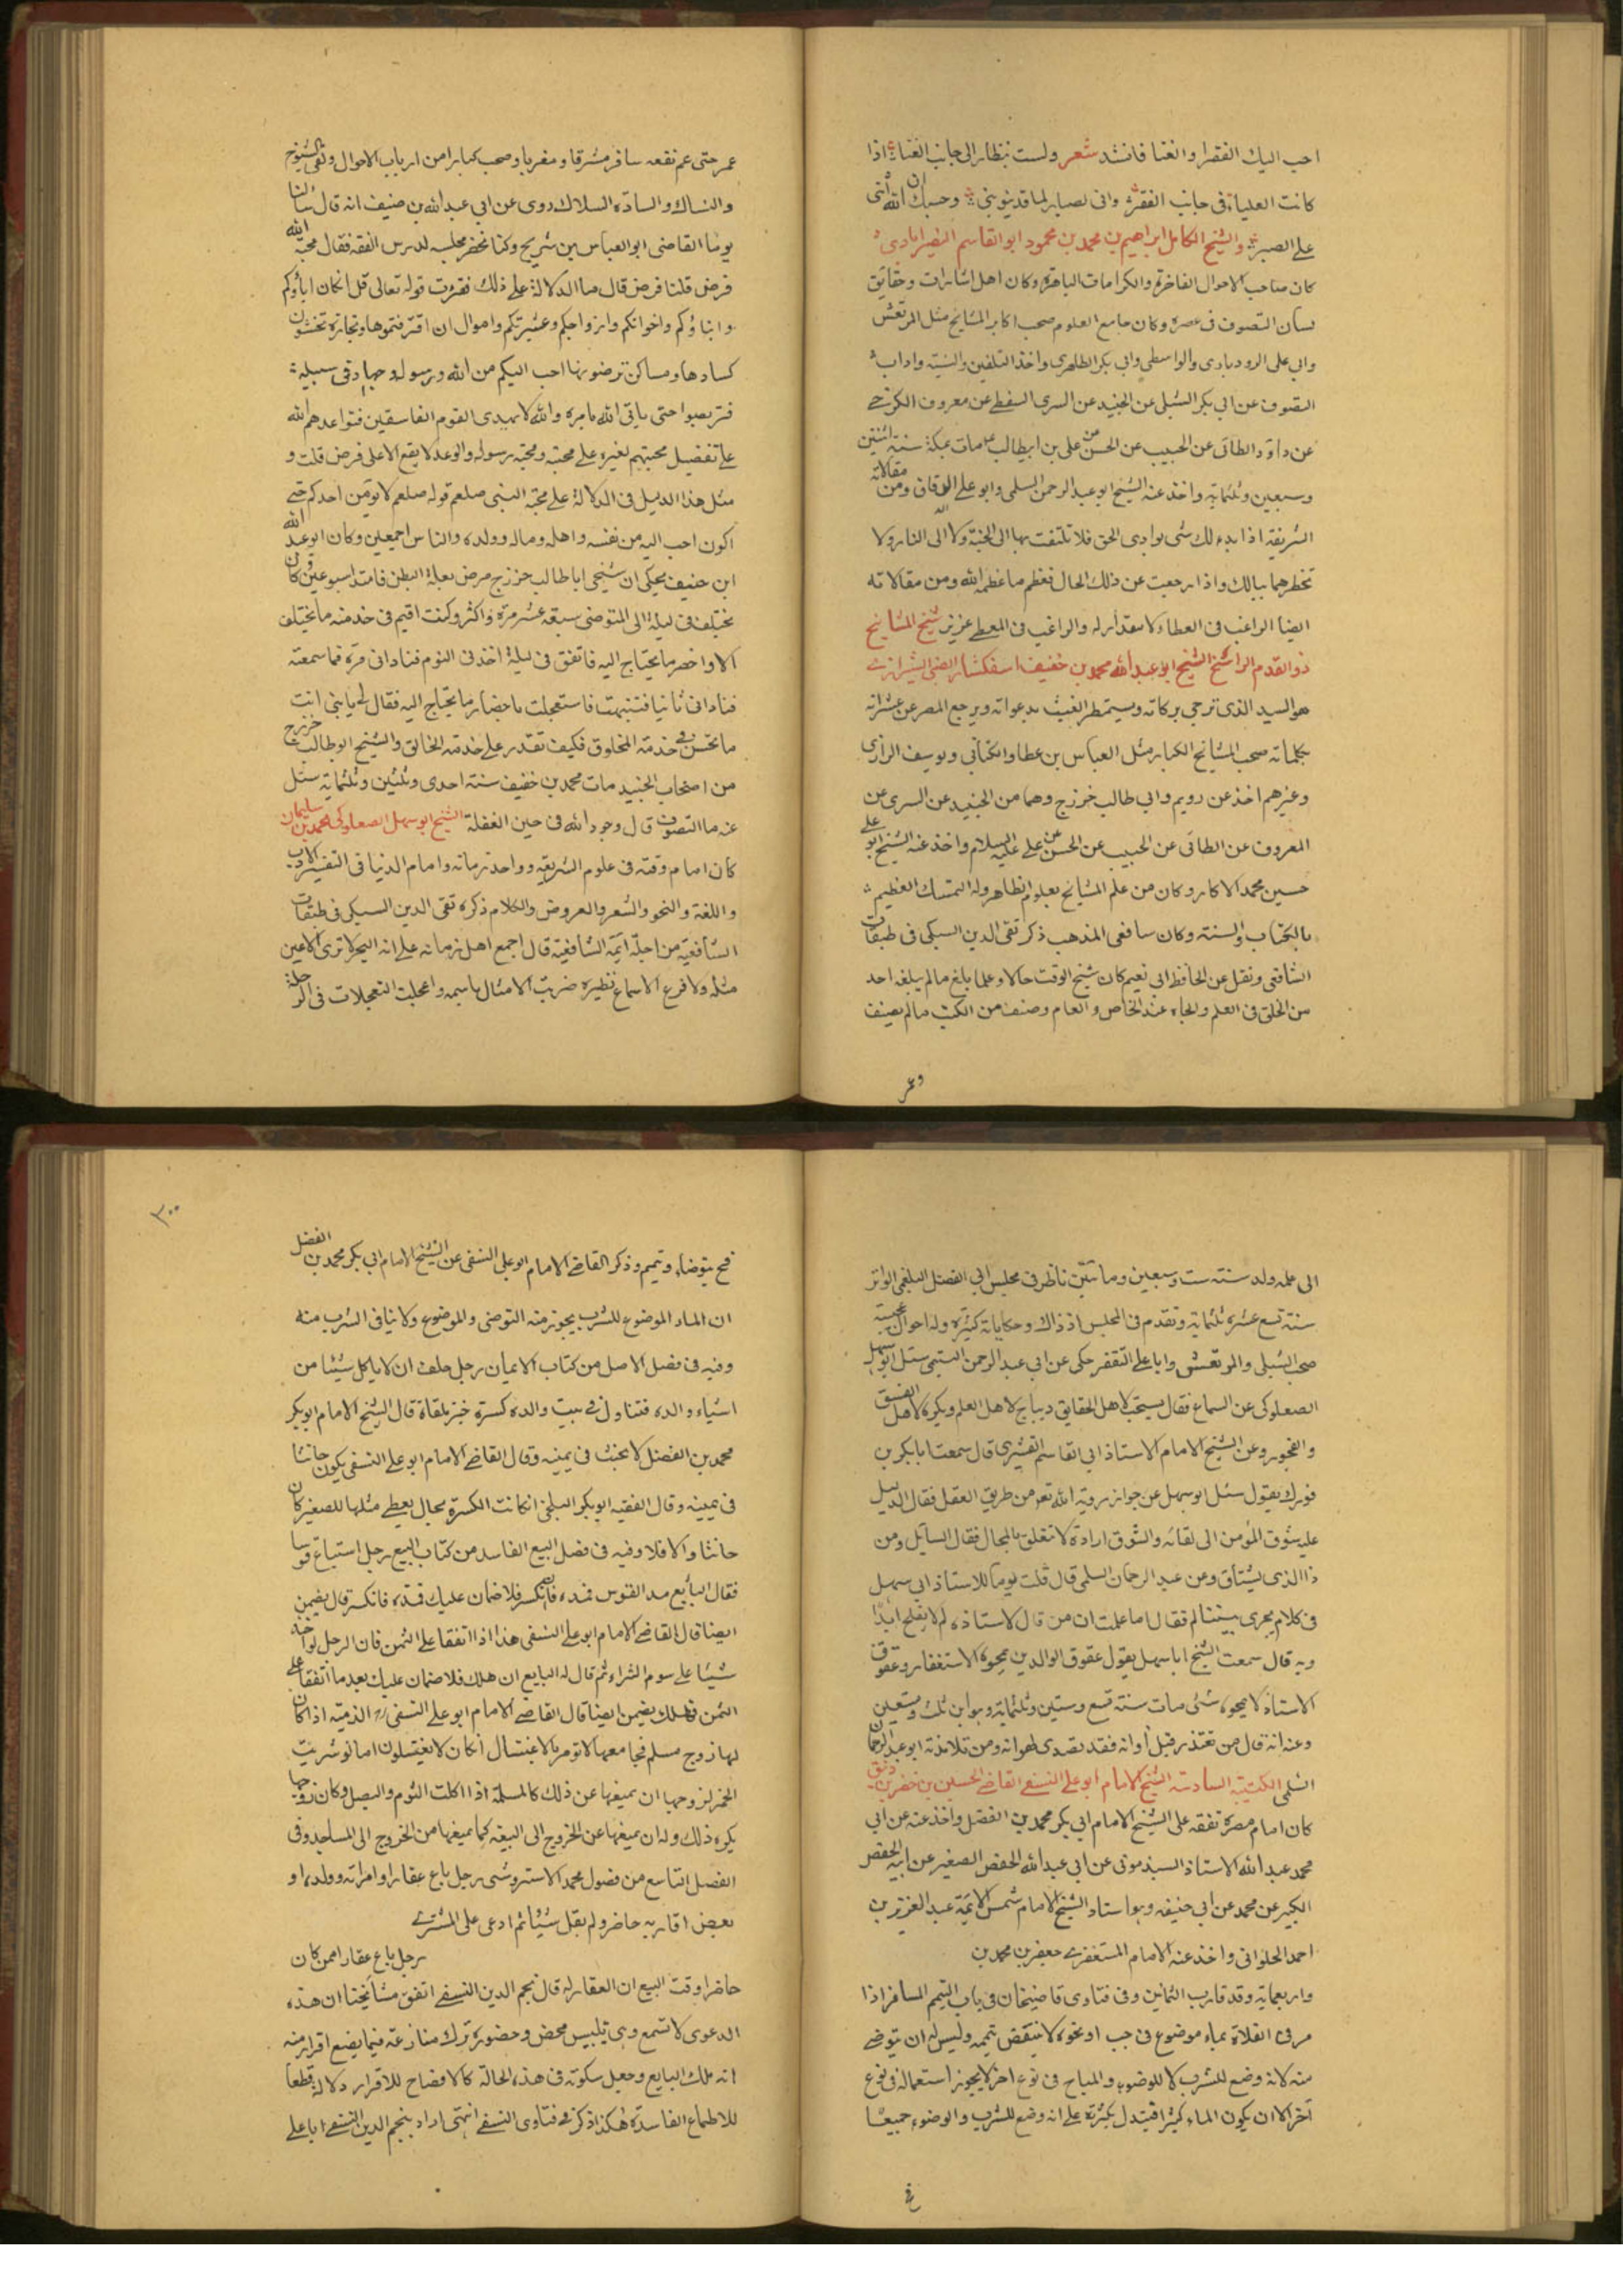 احب اليك الفقرا والغنا فانشد شعر ولست بنظار الى جانب الغنا اذا
كانت العلياء فى جانب الفقر وانى لصبار لما قد ينوبنى وحسبك ان الله اثنى
على الصبر والشيخ الكامل ابراهيم بن محمد بن محمود ابو القاسم النصرابادى
كان صاحب الاحوال الفاخرة والكرامات الباهرة وكان اهل اشارات وحقايق
لسان التصوف فى عصره وكان جامع العلوم صحب اكابر المشايخ مثل المرتعش
وابى على الرودبارى والواسطى وابى بكر الطاهرى واخذ التلقين والسنة واداب
التصوف عن ابى بكر الشبلى عن الجنيد عن السرى السقطى عن معروف الكرخى
عن داود الطائى عن الحبيب عن الحسن عن على بن ابيطالب مات بمكة سنة اثنتين
وسبعين وثلثماية واخذ عنه الشيخ ابو عبد الرحمن السلمى وابو على الدقاق ومن مقالاته
الشريفة اذا بدء لك شى بوادى الحق فلا تلتفت بها الى الجنة ولا الى النار ولا
تخطرهما ببالك واذا رجعت عن ذلك الحال فعظم ما عظمه الله ومن مقالاته
ايضا الراغب فى العطاء لا مقدار له والراغب فى المعطى عزيز شيخ المشايخ
ذو القدم الراسخ الشيخ ابو عبد الله محمد بن خفيف اسفكشار الضبى الشيرازى
هو السيد الذى ترجى بركاته ويستمطر الغيث بدعواته ويرجع المصر عن عثراته
بكلماته صحب المشايخ الكبار مثل العباس بن عطا والكتانى ويوسف الرازى
وغيرهم اخذ عن رويم وابى طالب خزرج وهما من الجنيد عن السرى عن
المعروف عن الطائى عن الحبيب عن الحسن عن على عليه السلام واخذ عنه الشيخ ابو على
حسين محمد الاكار وكان من علم المشايخ بعلوم الظاهر وله التمسك العظيم
بالكتاب والسنة وكان شافعى المذهب ذكر تقى الدين السبكى فى طبقات
الشافعى ونقل عن الحافظ ابى نعيم كان شيخ الوقت حالا وعلما بلغ مالم يبلغه احد
من الخلق فى العلم والجاه عند الخاص والعام وصنف من الكتب مالم يصنف
وعمر
عمر حتى عم نفعه سافر مشرقا ومغربا وصحب كبارا من ارباب الاحوال ولقى الشيوخ
والنساك والسادة السلاك روى عن ابى عبد الله بن خنيف انه قال سالنا
يوما القاضى ابو العباس بن شريح وكنا نحضر مجلسه لدرس الفقه فقال محبة الله
فرض قلنا فرض قال ما الدلالة على ذلك فقرءت قوله تعالى قل ان كان اباؤكم
وابناؤكم واخوانكم وازواجكم وعشيرتكم واموال ان اقترفتموها وتجارة تخشون
كسادها ومساكن ترضونها احب اليكم من الله ورسوله وجهاد فى سبيله
فتربصوا حتى ياتى الله بامره والله لا يهدى القوم الفاسقين فتواعدهم الله
على تفضيل محبتهم لغيره على محبته ومحبة رسوله والوعد لا يقع الا على فرض قلت و
مثل هذا الدليل فى الدلالة على محبة النبى صلعم قوله صلعم لا يؤمن احدكم حتى
اكون احب اليه من نفسه واهله وماله وولده والناس اجمعين وكان ابو عبد الله
ابن خنيف يحكى ان شيخى ابا طالب خزرج مرض بعلة البطن فامتد اسبوعين وكان
يختلف فى ليلة الى المتوضى سبعة عشر مرة واكثر وكنت اقيم فى خدمته ما يختلف
الا واحضر ما يحتاج اليه فاتفق فى ليلة اخذنى النوم فنادانى مرة فما سمعته
فنادانى ثانيا فتنبهت فاستعجلت باحضار ما يحتاج اليه فقال لى يا بنى انت
ما تحسن فى خدمة المخلوق فكيف تقدر على خدمة الخالق والشيخ ابو طالب خزرج
من اصحاب الجنيد مات محمد بن خفيف سنة احدى وثلثين وثلثماية سئل
عنه ما التصوف قال وجود الله فى حين الغفلة الشيخ ابو سهل الصعلوكى محمد بن سليمان
كان امام وقته فى علوم الشريعة وواحد زمانه وامام الدنيا فى التفسير والادب
واللغة والنحو والشعر والعروض والكلام ذكره تقى الدين السبكى فى طبقات
الشافعية من اجلة ائمة الشافعية قال اجمع اهل زمانه على انه البحر لا ترى الاعين
مثله ولا قرع الاسماع نظيره ضربت الامثال باسمه واعجلت التعجلات فى الرحلة
الى علمه ولد سنة ست وسبعين ومائتين ناظر فى مجلس ابى الفضل البلغمى الوزير
سنة تسع عشرة ثلثماية وتقدم فى المجلس اذ ذاك وحكاياته كثيرة وله احوال عجيبة
صحب الشبلى والمرتعش وابا على الثقفى حكى عن ابى عبد الرحمن السلمى سئل ابو سهل
الصعلوكى عن السماع فقال يستحب لاهل الحقايق ويباح لاهل العلم ويكره لاهل الفسق
والفجور وعن الشيخ الامام الاستاذ ابى القاسم القشيرى قال سمعت ابا بكر بن
فورك يقول سئل ابو سهل عن جواز رؤية الله تعم من طريق العقل فقال الدليل
عليه شوق المؤمن الى لقائه والشوق ارادة لا تتعلق بالمحال فقال السائل ومن
ذا الذى يشتاق وعن عبد الرحمان السلمى قال قلت يوما للاستاذ ابى سهل
فى كلام يجرى بيننا لم فقال اما علمت ان من قال لاستاذه لم لا يفلح ابدا
وبه قال سمعت الشيخ ابا سهل يقول عقوق الوالدين يمحوه الاستغفار وعقوق
الاستاذ لا يمحوه شئ مات سنة تسع وستين وثلثماية وهو ابن ثلث وتسعين
وعنه انه قال من تصدر قبل اوانه فقد تصدى لهوانه ومن تلامذته ابو عبد الرحمان
السلمى الكتيبة السادسة الشيخ الامام ابو على النسفى القاضى الحسين بن خضر بن
كان امام مصره تفقه على الشيخ الامام ابى بكر محمد بن الفضل واخذ عنه عن ابى
محمد عبد الله الاستاذ السبذمونى عن ابى عبد الله الحفص الصغير عن ابيه الحفص
الكبير عن محمد عن ابى حنيفه وهو استاد الشيخ الامام شمس الائمة عبد العزيز بن
احمد الحلوانى واخذ عنه الامام المستغفرى جعفر بن محمد بن
واربعماية وقد قارب الثمانين وفى فتاوى قاضيخان فى باب التيمم المسافر اذا
مر فى الفلاة بماء موضوع فى جب او نحوه لا ينتقض تيممه وليس له ان يتوضى
منه لانه وضع للشرب لا للوضوء والمباح فى نوع اخر لا يجوز استعماله فى نوع
آخر الا ان يكون الماء كثيرا فيستدل بكثرته على انه وضع للشرب والوضوء جميعا
فح
٣٠٠
فح يتوضاء وتيمم وذكر القاضى الامام ابو على النسفى عن الشيخ الامام ابى بكر محمد بن الفضل
ان الماء الموضوع للشرب يجوز منه التوضى والموضوع ولا ينافى الشرب منه
وفيه فى فضل الاصل من كتاب الايمان رجل حلف ان لا ياكل شيئا من
اشياء والده فتناول فى بيت والده كسرة خبز ملقاة قال الشيخ الامام ابو بكر
محمد بن الفضل لا يحنث فى يمينه وقال القاضى الامام ابو على النسفى يكون حانثا
فى يمينه وقال الفقيه ابو بكر البلخى ان كانت الكسرة بحال يعطى مثلها للصغير كان
حانثا والا فلا وفيه فى فصل البيع الفاسد من كتاب البيع رجل استباع قوسا
فقال البايع مد القوس فمده فانكسر فلا ضمان عليك فمده فانكسر قال يضمن
ايضا قال القاضى الامام ابو على النسفى هذا اذا اتفقا على الثمن فان الرجل لو اخذ
شيئا على سوم الشراء ثم قال له البايع ان هلك فلا ضمان عليك بعد ما اتفقا على
الثمن فهلك يضمن ايضا قال القاضى الامام ابو على النسفى ره الذمية اذا كان
لها زوج مسلم فجامعها لا تؤمر بالاغتسال اذ كان لا يغتسلون اما لو شربت
الخمر لزوجها ان يمنعها عن ذلك كالمسلمة اذا اكلت الثوم والبصل وكان زوجها
يكره ذلك وله ان يمنعها عن الخروج الى البيعة كما يمنعها من الخروج الى المساجد وفى
الفصل التاسع من فصول محمد الاستروشنى رجل باع عقارا وامراته وولده او
بعض اقاربه حاضر ولم يقل شيئا ثم ادعى على المشترى
رجل باع عقارا ممن كان
حاضرا وقت البيع ان العقار له قال نجم الدين النسفى اتفق مشايخنا ان هذه
الدعوى لا تسمع وهى تلبيس محض وحضوره ترك منازعته فيما يضع اقرار منه
انه ملك البايع وجعل سكوته فى هذه الحالة كالافصاح للاقرار دلالة قطعا
للاطماع الفاسدة هكذا ذكر فى فتاوى النسفى انتهى اراد بنجم الدين النسفى ابا على